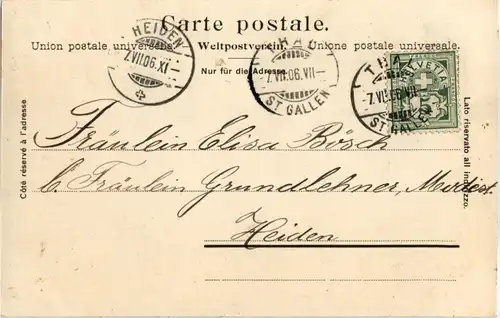 Carte postale.
Union postale universelle. Weltpostverein. Unione postale universale.
Nur für die Adresse.
HEIDEN
7.VII.06.XI-
THAL
-7.VII.06.VII-
ST GALLEN
THAL
-7.VII.06.VII-
ST GALLEN
HELVETIA
Côté réservé à l'adresse
Lato riservato all indirizzo.
Fräulein Elisa Bösch
b. Fräulein Grundlehner, Modist.
Heiden